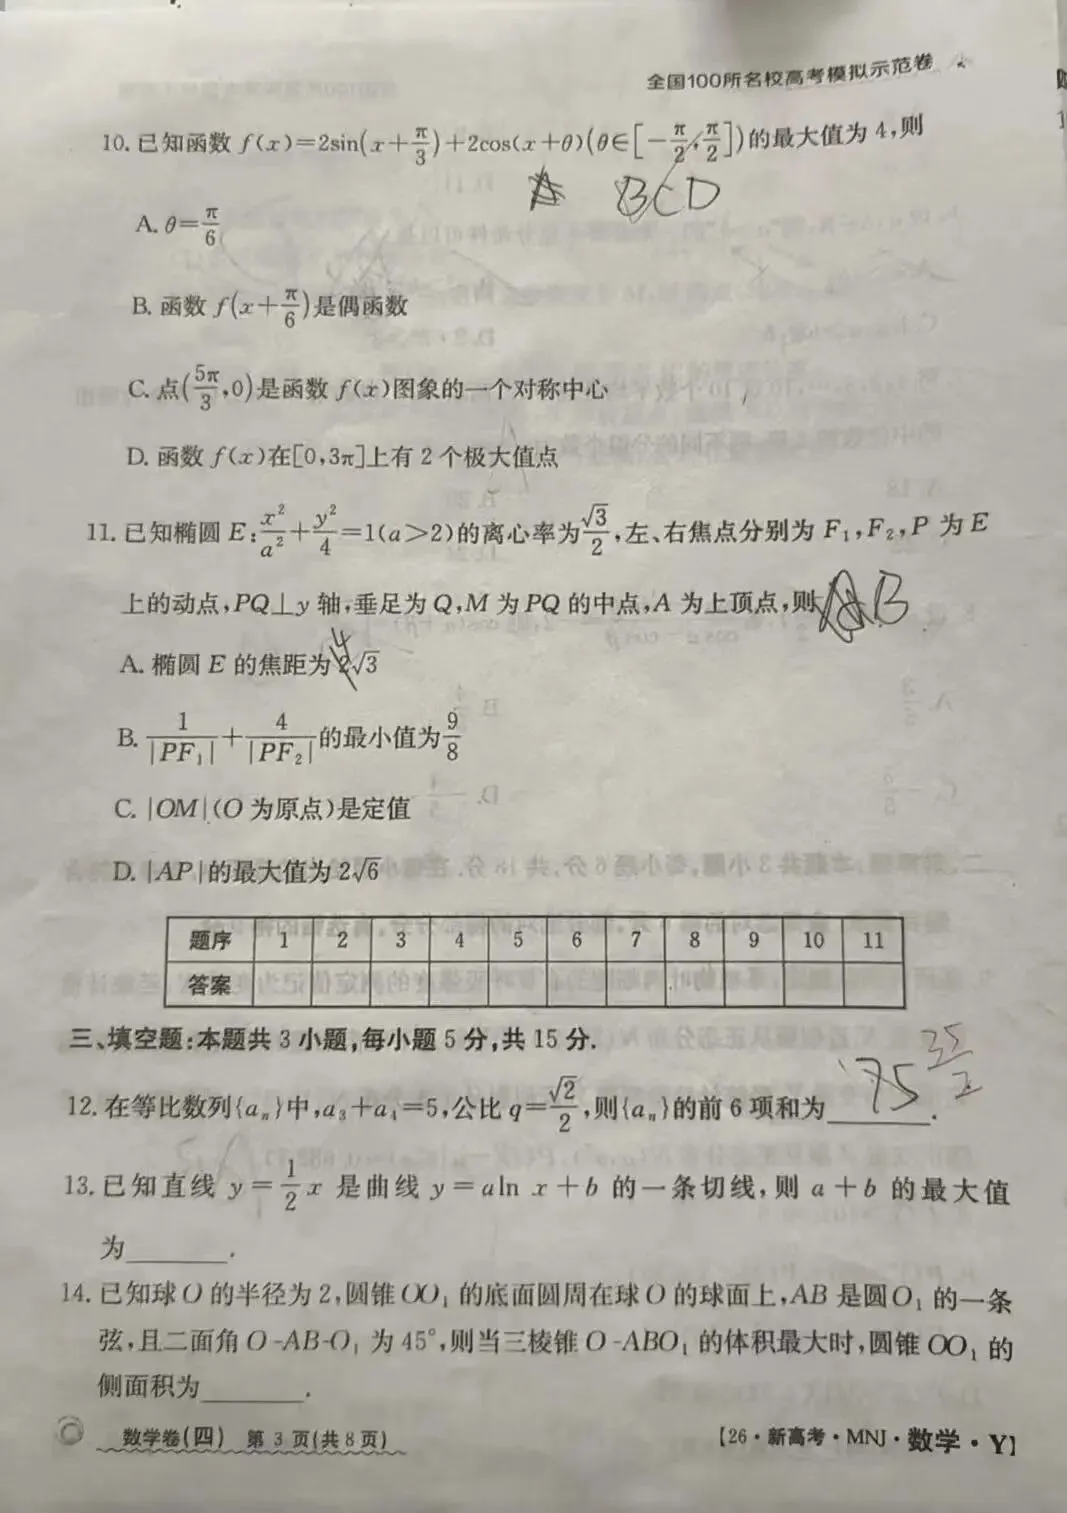 全国100所名校高考模拟示范卷
10. 已知函数 f(x)=2sin(x+π/3)+2cos(x+θ)(θ∈[-π/2,π/2])的最大值为 4,则
BCD
A. θ=π/6
B. 函数 f(x+π/6)是偶函数
C. 点(5π/3,0)是函数 f(x)图象的一个对称中心
D. 函数 f(x)在[0,3π]上有 2 个极大值点
11. 已知椭圆 E:x²/a²+y²/4=1(a>2)的离心率为√3/2,左、右焦点分别为 F₁,F₂,P 为 E
上的动点,PQ⊥y 轴,垂足为 Q,M 为 PQ 的中点,A 为上顶点,则
AB
A. 椭圆 E 的焦距为 2√3
4
B. 1/|PF₁|+4/|PF₂|的最小值为9/8
C. |OM|(O 为原点)是定值
D. |AP|的最大值为 2√6
题序 1 2 3 4 5 6 7 8 9 10 11
答案
三、填空题:本题共 3 小题,每小题 5 分,共 15 分.
12. 在等比数列{aₙ}中,a₃+a₄=5,公比 q=√2/2,则{aₙ}的前 6 项和为________.
75 35/2
13. 已知直线 y=1/2 x 是曲线 y=aln x+b 的一条切线,则 a+b 的最大值
为________.
14. 已知球 O 的半径为 2,圆锥 OO₁ 的底面圆周在球 O 的球面上,AB 是圆 O₁ 的一条
弦,且二面角 O-AB-O₁ 为 45°,则当三棱锥 O-ABO₁ 的体积最大时,圆锥 OO₁ 的
侧面积为________.
数学卷(四) 第 3 页(共 8 页)
【26·新高考·MNJ·数学·Y】